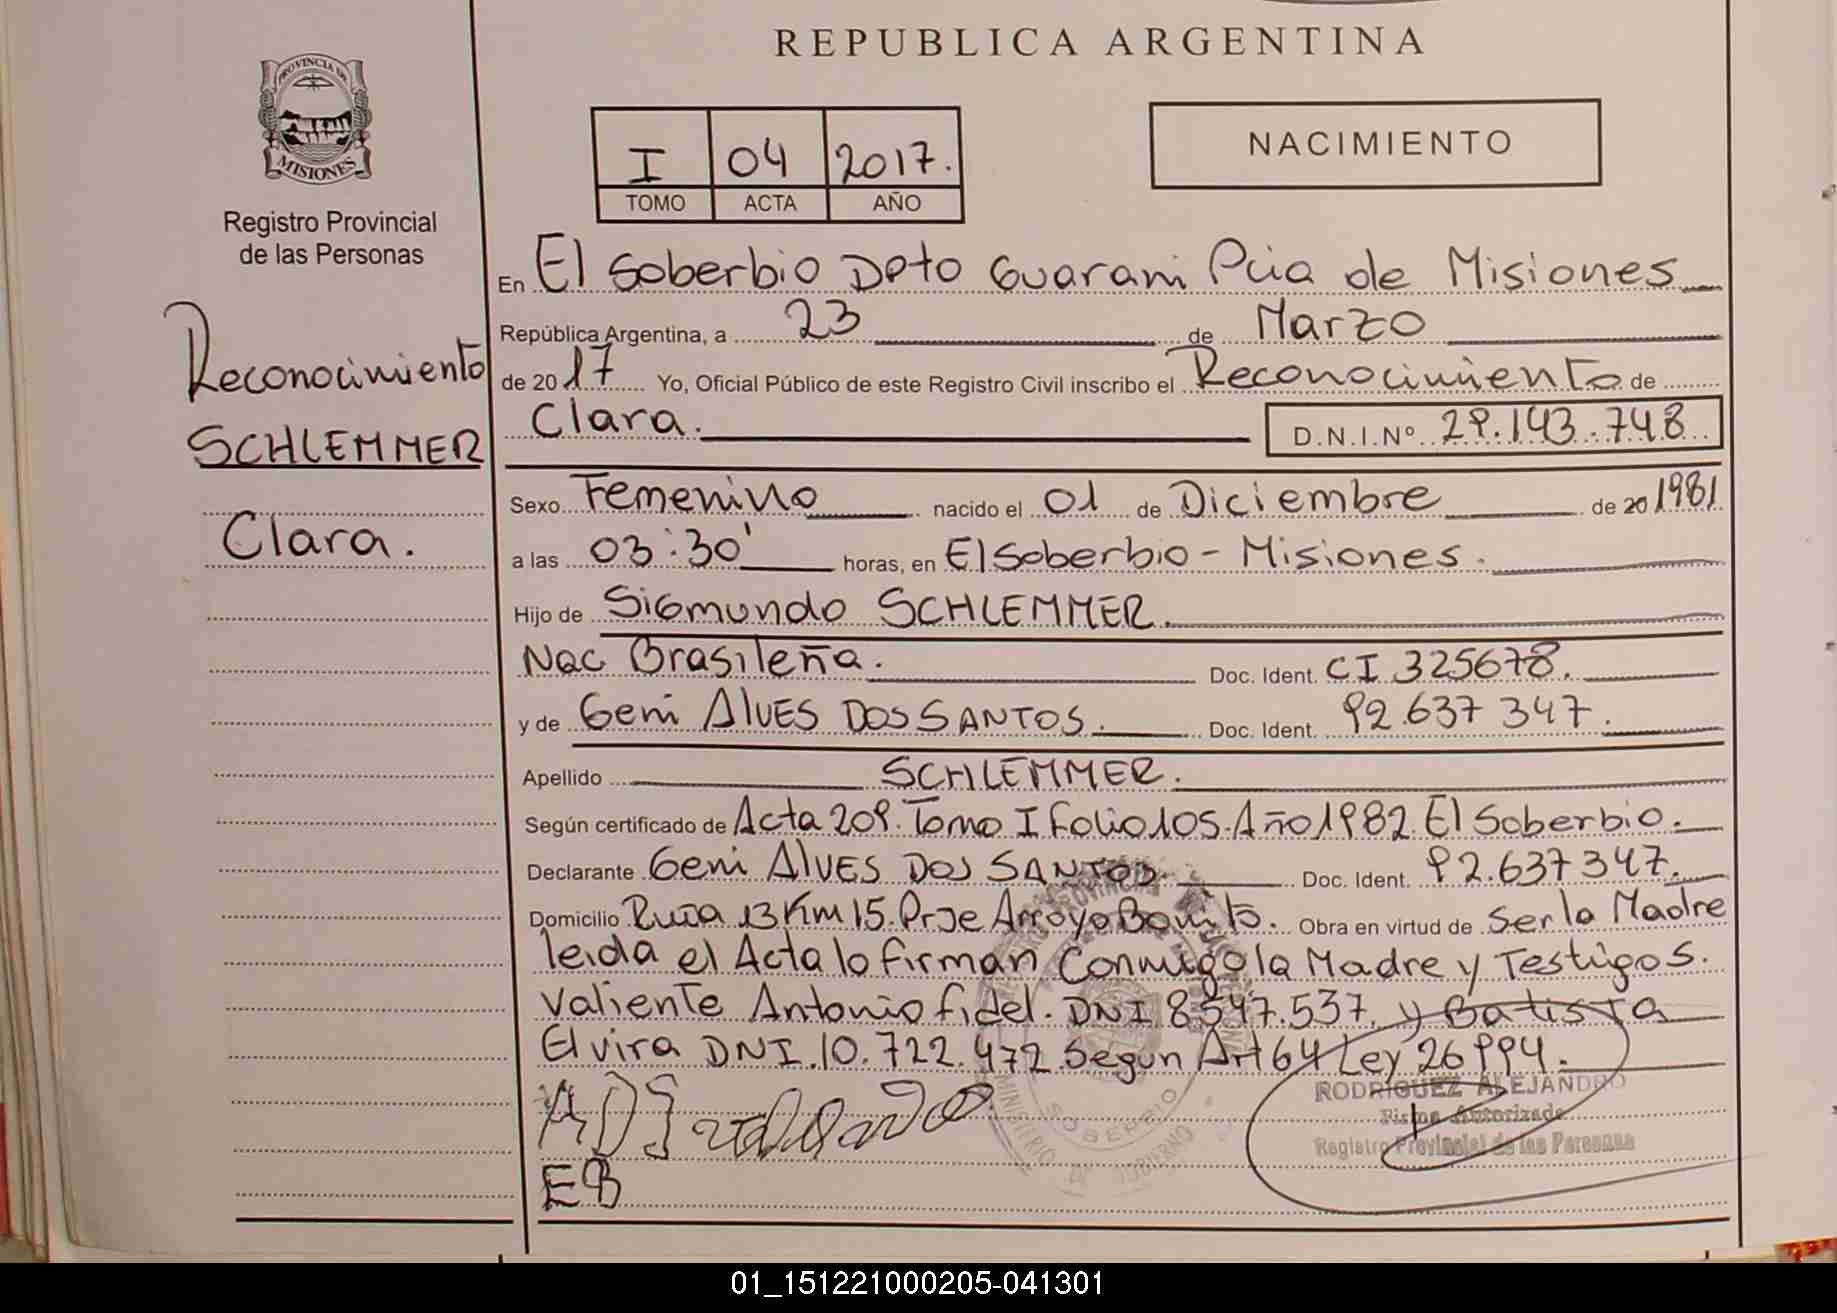 REPUBLICA ARGENTINA
PROVINCIA DE
MISIONES
Registro Provincial
de las Personas
I 04 2017.
TOMO ACTA AÑO
NACIMIENTO
Reconocimiento
SCHLEMMER
Clara.
En El Soberbio Dpto Guarani Pcia de Misiones
República Argentina, a 23 de Marzo
de 2017 Yo, Oficial Público de este Registro Civil inscribo el Reconocimiento de
Clara. D.N.I.Nº 29.143.748
Sexo Femenino nacido el 01 de Diciembre de 20 1981
a las 03:30' horas, en El Soberbio - Misiones.
Hijo de Sigmundo SCHLEMMER.
Nac Brasileña. Doc. Ident. CI 325678.
y de Geni Alves DOS SANTOS. Doc. Ident. 92.637 347.
Apellido SCHLEMMER.
Según certificado de Acta 209. Tomo I Folio 105. Año 1982 El Soberbio.
Declarante Geni Alves DOS SANTOS. Doc. Ident. 92.637 347.
Domicilio Ruta 13 Km 15. Prje Arroyo Bonito. Obra en virtud de Ser la Madre
leida el Acta lo firman Conmigo la Madre y Testigos.
Valiente Antonio fidel. DNI 8547.537. y Batista
Elvira DNI.10.722.472 Segun Art 64 Ley 26994.
RODRIGUEZ ALEJANDRO
Firma Autorizada
Registro Provincial de las Personas
SOBERBIO
MINISTERIO DE GOBIERNO
EB
01_151221000205-041301